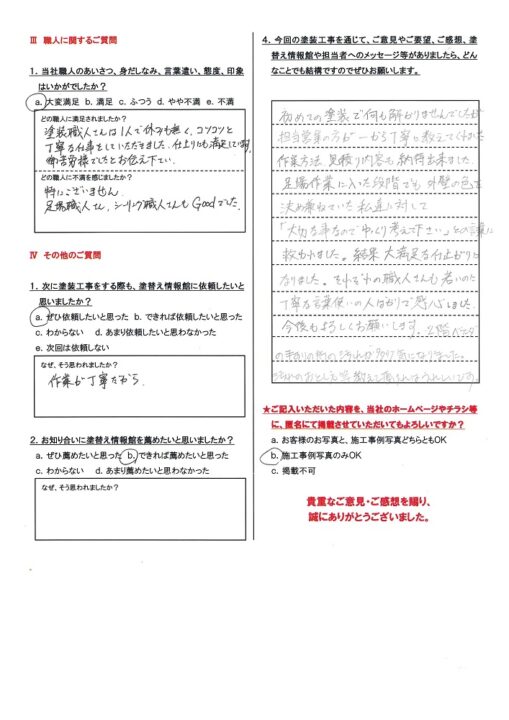 Ⅲ 職人に関するご質問
1. 当社職人のあいさつ、身だしなみ、言葉遣い、態度、印象
はいかがでしたか?
a. 大変満足 b. 満足 c. ふつう d. やや不満 e. 不満
どの職人に満足されましたか?
塗装職人さんは1人で休みも無く、コツコツと
丁寧な仕事をしていただきました。仕上りにも満足しています。
御苦労様でしたとお伝え下さい。
どの職人に不満を感じましたか?
特にございません。
足場職人さん、シーリング職人さんもGoodでした。
Ⅳ その他のご質問
1. 次に塗装工事をする際も、塗替え情報館に依頼したいと
思いましたか?
a. ぜひ依頼したいと思った b. できれば依頼したいと思った
c. わからない d. あまり依頼したいと思わなかった
e. 次回は依頼しない
なぜ、そう思われましたか?
作業が丁寧だから
2. お知り合いに塗替え情報館を薦めたいと思いましたか?
a. ぜひ薦めたいと思った b. できれば薦めたいと思った
c. わからない d. あまり薦めたいと思わなかった
なぜ、そう思われましたか?
4. 今回の塗装工事を通じて、ご意見やご要望、ご感想、塗
替え情報館や担当者へのメッセージ等がありましたら、どん
なことでも結構ですのでぜひお願いします。
初めての塗装で何も解かりませんでしたが
担当営業の方が一から丁寧に教えてくれた
作業方法 見積り内容も納得出来ました。
足場作業に入った段階でも外壁の色を
決め兼ねていた私達に対して
「大切な事なのでゆっくり考えて下さい」との言葉に
救われました。結果 大満足な仕上がりに
なりました。それぞれの職人さんも若いのに
丁寧な言葉使いの人ばかりで感心しました。
今後もよろしくお願いします。2階ベランダ
★ご記入いただいた内容を、当社のホームページやチラシ等
に、匿名にて掲載させていただいてもよろしいですか?
a. お客様のお写真と、施工事例写真どちらともOK
b. 施工事例写真のみOK
c. 掲載不可
貴重なご意見・ご感想を賜り、
誠にありがとうございました。